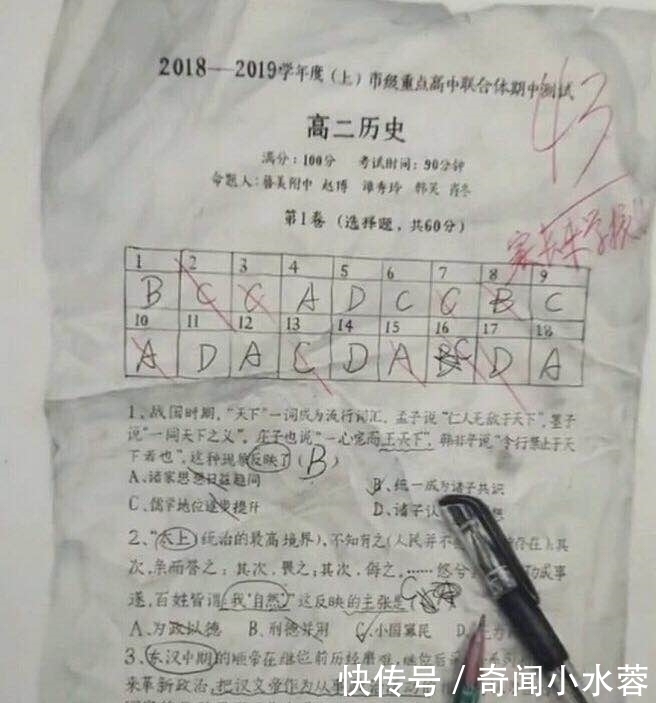 2018——2019学年度（上）市级重点高中联合体期中测试
43
高二历史
满分：100分 考试时间：90分钟
命题人：
第1卷 （选择题，共60分）
家长来学校
1 2 3 4 5 6 7 8 9
B C C A D C C B C
10 11 12 13 14 15 16 17 18
A D A C D A C D A
1、战国时期，“天下”一词成为流行词汇。孟子说“仁人无敌于天下”，墨子
说“一同天下之义”，庄子也说“一心定而王天下”，韩非子说“令行禁止于天
下者也”，这种现象反映了（B）
A、诸家思想日益趋同 B、统一成为诸子共识
C、儒学地位逐步提升 D、诸子认
2、“（太上）统治的最高境界），不知有之（人民并不 存在），其
次，亲而誉之；其次，畏之；其次，侮之。……悠兮 功成事
遂，百姓皆谓‘我自然’”这反映的主张是
A、为政以德 B、刑德并用 C、小国寡民 D、
3、东汉中期的顺帝在继位前历经磨难，继位后
来革新政治，把汉文帝作为从
快传号 / 奇闻小水蓉